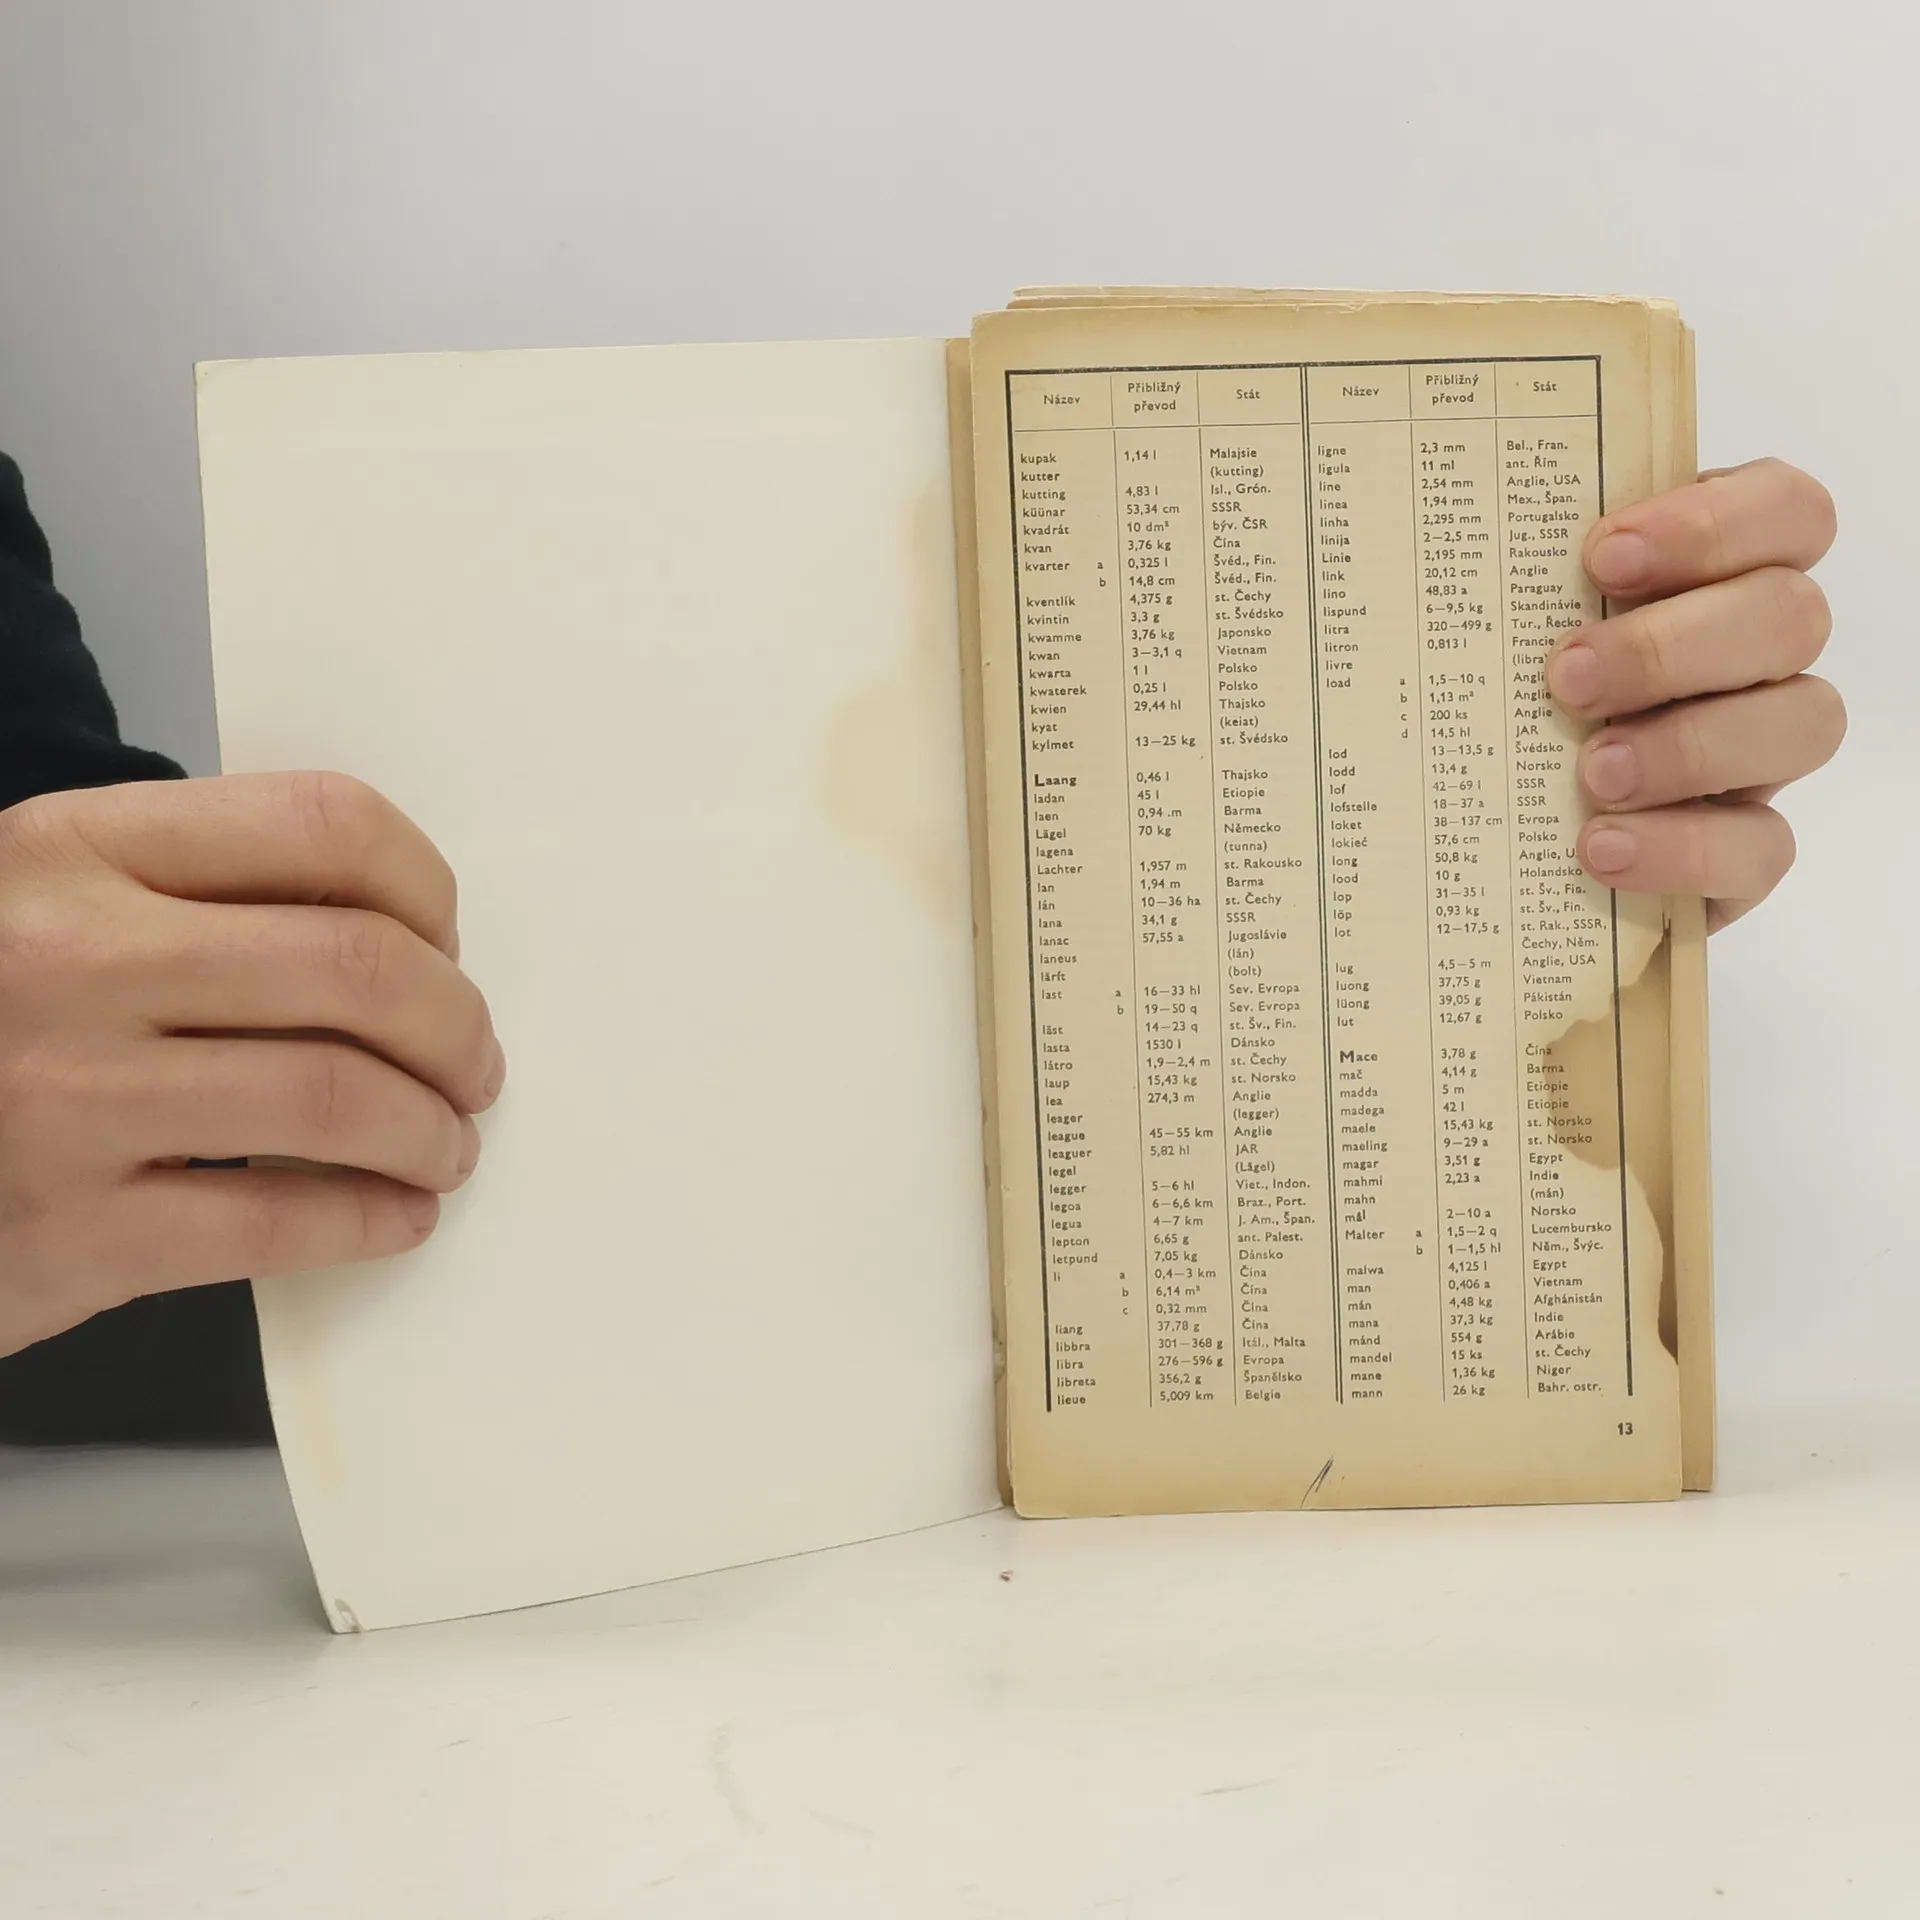 Název Přibližný převod Stát
kupak 1,14 l Malajsie
kutter (kutting)
kutting 4,83 l Isl., Grón.
küünar 53,34 cm SSSR
kvadrát 10 dm² býv. ČSR
kvan 3,76 kg Čína
kvarter a 0,325 l Švéd., Fin.
b 14,8 cm Švéd., Fin.
kventlík 4,375 g st. Čechy
kvintin 3,3 g st. Švédsko
kwamme 3,76 kg Japonsko
kwan 3—3,1 q Vietnam
kwarta 1 l Polsko
kwaterek 0,25 l Polsko
kwien 29,44 hl Thajsko
kyat (keiat)
kylmet 13—25 kg st. Švédsko
Laang 0,46 l Thajsko
ladan 45 l Etiopie
laen 0,94 .m Barma
Lägel 70 kg Německo
lagena (tunna)
Lachter 1,957 m st. Rakousko
lan 1,94 m Barma
lán 10—36 ha st. Čechy
lana 34,1 g SSSR
lanac 57,55 a Jugoslávie
laneus (lán)
lärft (bolt)
last a 16—33 hl Sev. Evropa
b 19—50 q Sev. Evropa
läst 14—23 q st. Šv., Fin.
lasta 1530 l Dánsko
látro 1,9—2,4 m st. Čechy
laup 15,43 kg st. Norsko
lea 274,3 m Anglie
leager (legger)
league 45—55 km Anglie
leaguer 5,82 hl JAR
legel (Lägel)
legger 5—6 hl Viet., Indon.
legoa 6—6,6 km Braz., Port.
legua 4—7 km J. Am., Špan.
lepton 6,65 g ant. Palest.
letpund 7,05 kg Dánsko
li a 0,4—3 km Čína
b 6,14 m² Čína
c 0,32 mm Čína
liang 37,78 g Čína
libbra 301—368 g Itál., Malta
libra 276—596 g Evropa
libreta 356,2 g Španělsko
lieue 5,009 km Belgie
Název Přibližný převod Stát
ligne 2,3 mm Bel., Fran.
ligula 11 ml ant. Řím
line 2,54 mm Anglie, USA
linea 1,94 mm Mex., Špan.
linha 2,295 mm Portugalsko
linija 2—2,5 mm Jug., SSSR
Linie 2,195 mm Rakousko
link 20,12 cm Anglie
lino 48,83 a Paraguay
lispund 6—9,5 kg Skandinávie
litra 320—499 g Tur., Řecko
litron 0,813 l Francie
livre (libra)
load a 1,5—10 q Angli
b 1,13 m³ Anglie
c 200 ks Anglie
d 14,5 hl JAR
lod 13—13,5 g Švédsko
lodd 13,4 g Norsko
lof 42—69 l SSSR
lofstelle 18—37 a SSSR
loket 38—137 cm Evropa
lokieć 57,6 cm Polsko
long 50,8 kg Anglie, U
lood 10 g Holandsko
lop 31—35 l st. Šv., Fin.
löp 0,93 kg st. Šv., Fin.
lot 12—17,5 g st. Rak., SSSR,
Čechy, Něm.
lug 4,5—5 m Anglie, USA
luong 37,75 g Vietnam
lüong 39,05 g Pákistán
lut 12,67 g Polsko
Mace 3,78 g Čína
mač 4,14 g Barma
madda 5 m Etiopie
madega 42 l Etiopie
maele 15,43 kg st. Norsko
maeling 9—29 a st. Norsko
magar 3,51 g Egypt
mahmi 2,23 a Indie
mahn (mán)
mål 2—10 a Norsko
Malter a 1,5—2 q Lucembursko
b 1—1,5 hl Něm., Švýc.
malwa 4,125 l Egypt
man 0,406 a Vietnam
mán 4,48 kg Afghánistán
mana 37,3 kg Indie
mánd 554 g Arábie
mandel 15 ks st. Čechy
mane 1,36 kg Niger
mann 26 kg Bahr. ostr.
13